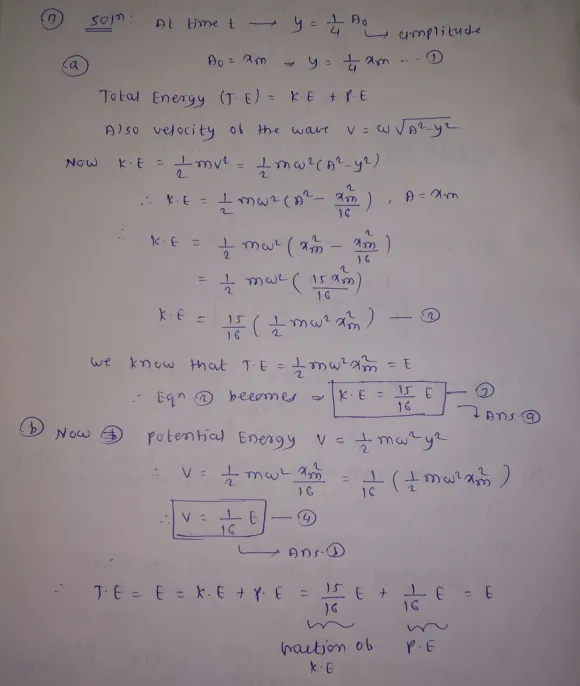 ⑦ Soln: At time t → y = 1/4 A₀
↳ amplitude
ⓐ A₀ = xm → y = 1/4 xm --- ①
Total Energy (T.E) = K.E + P.E
Also velocity ob the wave V = ω√A²-y²
Now K.E = 1/2 mv² = 1/2 mω² (A²-y²)
∴ K.E = 1/2 mω² (A² - xm²/16), A = xm
∴ K.E = 1/2 mω² (xm² - xm²/16)
= 1/2 mω² (15xm²/16)
K.E = 15/16 (1/2 mω² xm²) — ②
we know that T.E = 1/2 mω² xm² = E
∴ Eqn ② becomes ⇒ K.E = 15/16 E — ③
↳ Ans.ⓐ
ⓑ Now potential Energy V = 1/2 mω² y²
∴ V = 1/2 mω² xm²/16 = 1/16 (1/2 mω² xm²)
∴ V = 1/16 E — ④
↳ Ans.ⓑ
∴ T.E = E = K.E + P.E = 15/16 E + 1/16 E = E
fraction ob K.E P.E